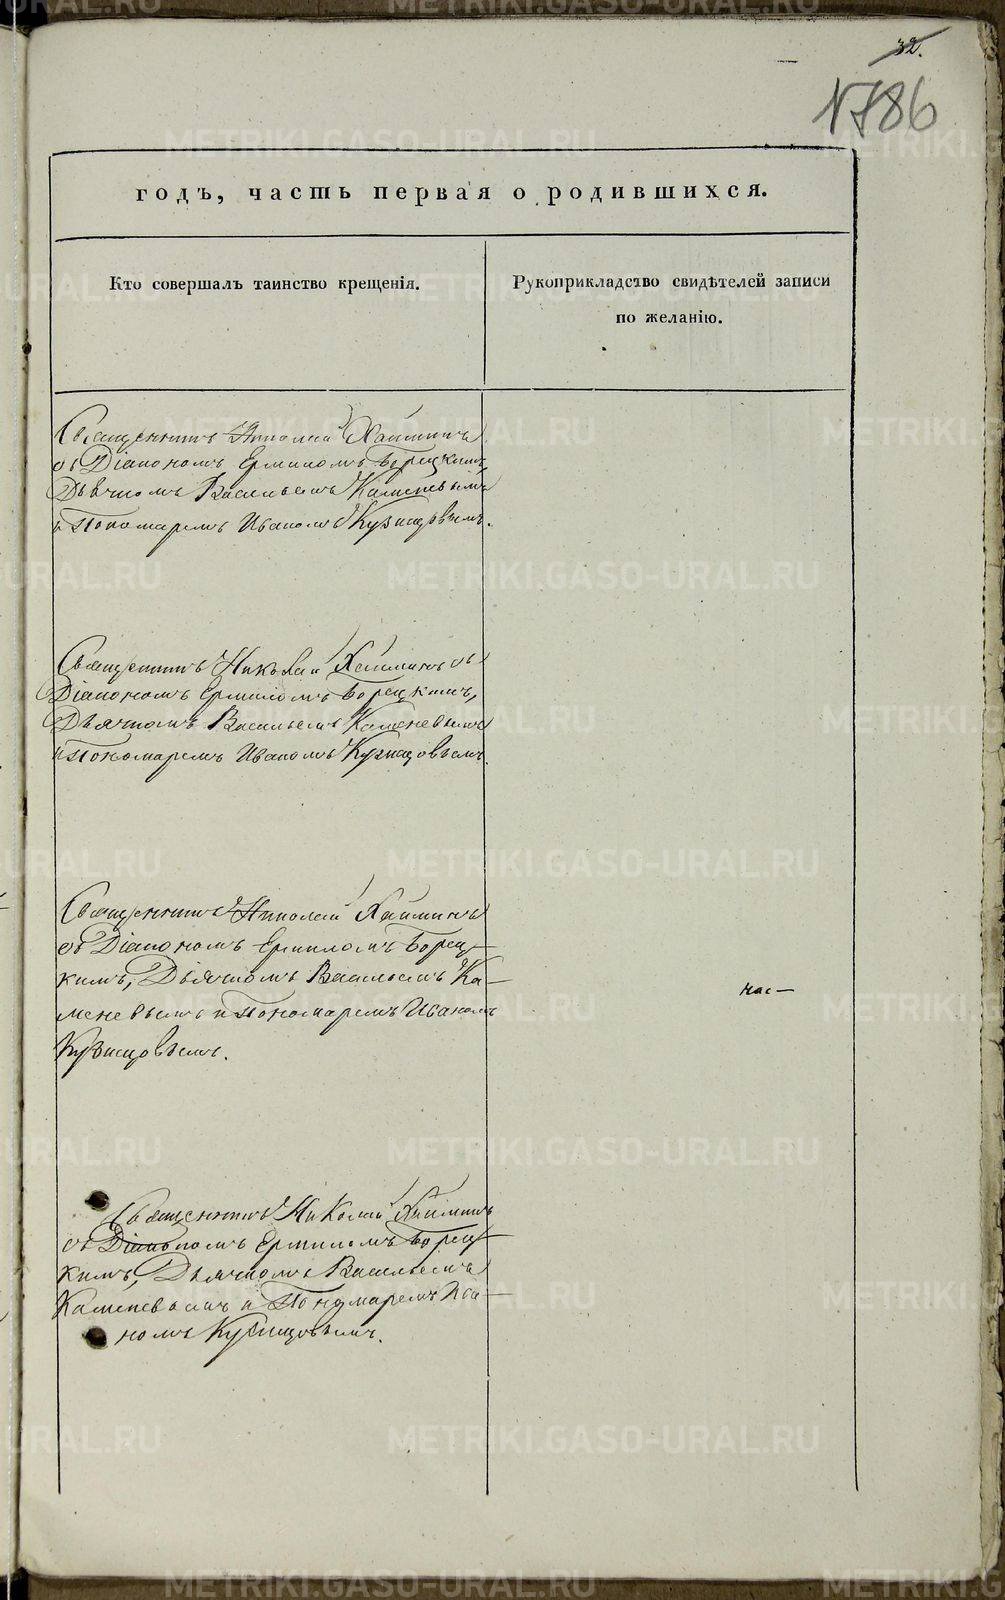 32.
186
годъ, часть первая о родившихся.
Кто совершалъ таинство крещенія.
Рукоприкладство свидѣтелей записи
по желанію.
Священникъ Николай Хайминъ
съ Діакономъ Ермиломъ Борецкимъ
Дьячкомъ Васильемъ Каменевымъ
и Пономаремъ Иваномъ Кузнецовымъ.
Священникъ Николай Хайминъ съ
Діакономъ Ермиломъ Борецкимъ,
Дьячкомъ Васильемъ Каменевымъ
и Пономаремъ Иваномъ Кузнецовымъ.
Священникъ Николай Хайминъ
съ Діакономъ Ермиломъ Борец-
кимъ, Дьячкомъ Васильемъ Ка-
меневымъ и Пономаремъ Иваномъ
Кузнецовымъ.
нас-
Священникъ Николай Хайминъ
съ Діакономъ Ермиломъ Борец-
кимъ, Дьячкомъ Васильемъ
Каменевымъ и Пономаремъ Ива-
номъ Кузнецовымъ.
METRIKI.GASO-URAL.RU